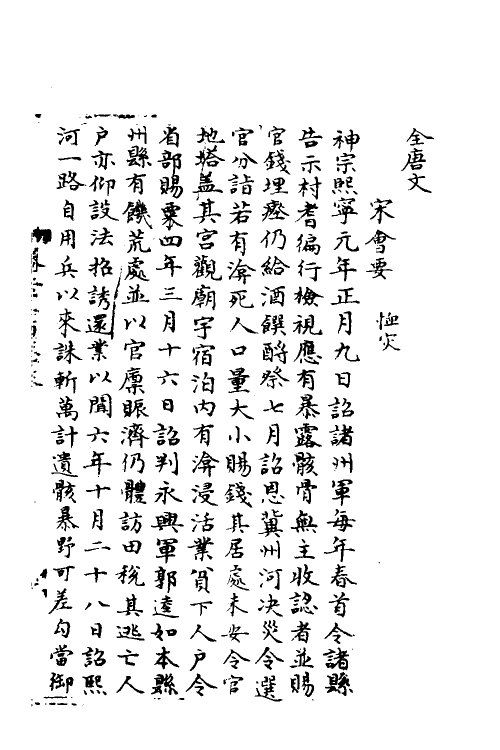 全唐文
宋會要 恤灾
神宗熙寧元年正月九日詔諸州軍每年春首令諸縣
告示村耆徧行檢視應有暴露骸骨無主收認者並賜
官錢埋瘞仍給酒饌酹祭七月詔恩冀州河决災令選
官分詣若有渰死人口量大小賜錢其居處未安令官
地搭盖其宫觀廟宇宿泊内有渰浸活業貧下人户令
省部賜粟四年三月十六日詔判永興軍郭逵如本縣
州縣有饑荒處並以官廩賑濟仍體訪田稅其逃亡人
户亦仰設法招誘還業以聞六年十月二十八日詔熙
河一路自用兵以來誅斬萬計遺骸暴野可差勾當御